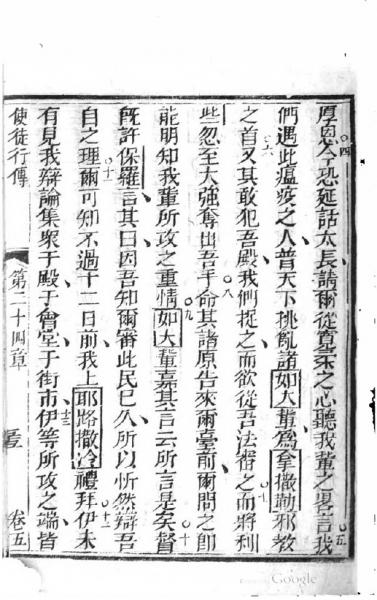 厚恩今恐延話太長請爾從寬柔之心聽我輩之畧言我
們遇此瘟疫之人普天下挑亂諸如大輩為拿撒勒邪教
之首又其敢犯吾殿我們捉之而欲從吾法審之而將利
些忽至大強奪出吾手命其諸原告來爾臺前爾問之卽
能明知我輩所攻之重情如大輩嘉其言云所言是矣督
旣許保羅言其曰因吾知爾審此民已久所以忻然辯吾
自之理爾可知不過十二日前我上耶路撒冷禮拜伊未
有見我辯論集衆于殿于會堂于街市伊等所攻之端皆
使徒行傳 第二十四章 卷五
Google